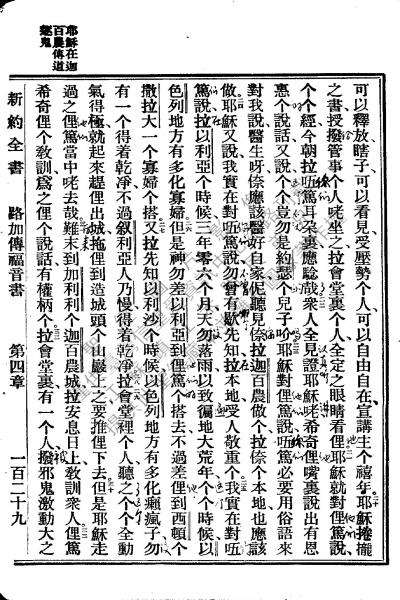 耶穌在迦
百農傳道
趕鬼
可以釋放瞎子可以看見受壓勢个人可以自由自在宣講主个禧年耶穌捲攏
之書授撥管事个人咾坐之拉會堂裏个人全定之眼睛看俚耶穌就對俚篤說
个个經今朝拉㕶篤耳朶裏應驗哉衆人全見證耶穌咾希奇俚嘴裏說出有恩
惠个說話又說个个豈勿是約瑟个兒子吤耶穌對俚篤說㕶篤必要用俗語來
對我說醫生呀倷應該醫好自家伲聽見倷拉迦百農做个拉倷个本地也應該
做耶穌又說我實在對㕶篤說勿曾有歇先知拉本地受人敬重个我實在對㕶
篤說拉以利亞个時候三年零六个月天勿落雨以致徧地大荒年个个時候以
色列地方有多化寡婦但是神勿差以利亞到俚篤个搭去不過差俚到西頓个
撒拉大一个寡婦个搭又拉先知以利沙个時候以色列地方有多化癩瘋子勿
有一个得着乾淨不過叙利亞人乃慢得着乾淨拉會堂裡个人聽之个个全動
氣得極就起來趕俚出城拖俚到造城頭个山巖上要推俚下去但是耶穌走
過之俚篤當中咾去哉難末到加利利个迦百農城拉安息日上敎訓衆人俚篤
希奇俚个敎訓因爲之俚个說話有權柄个拉會堂裏有一个人撥邪鬼激動大之
新約全書
路加傳福音書
第四章
一百二十九